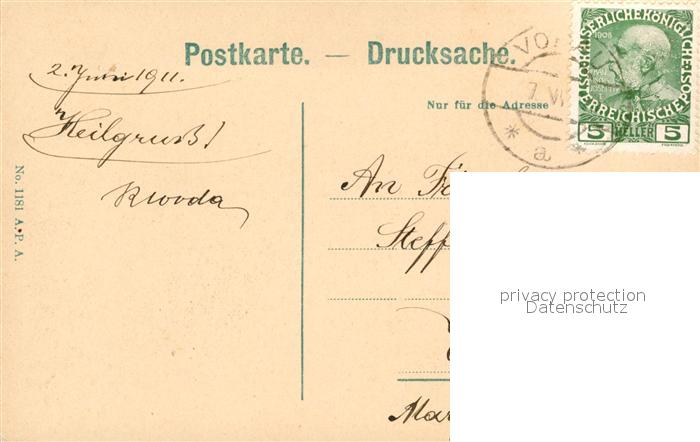 Postkarte. — Drucksache.
Nur für die Adresse
2. Juni 1911.
Heilgruß!
No. 1181 A. P. A.
An
Steff
Mar
KAISERLICHE KÖNIGLICHE
ÖSTERREICHISCHE POST
1908
5 HELLER 5
VO
7 VI
* a *
privacy protection
Datenschutz